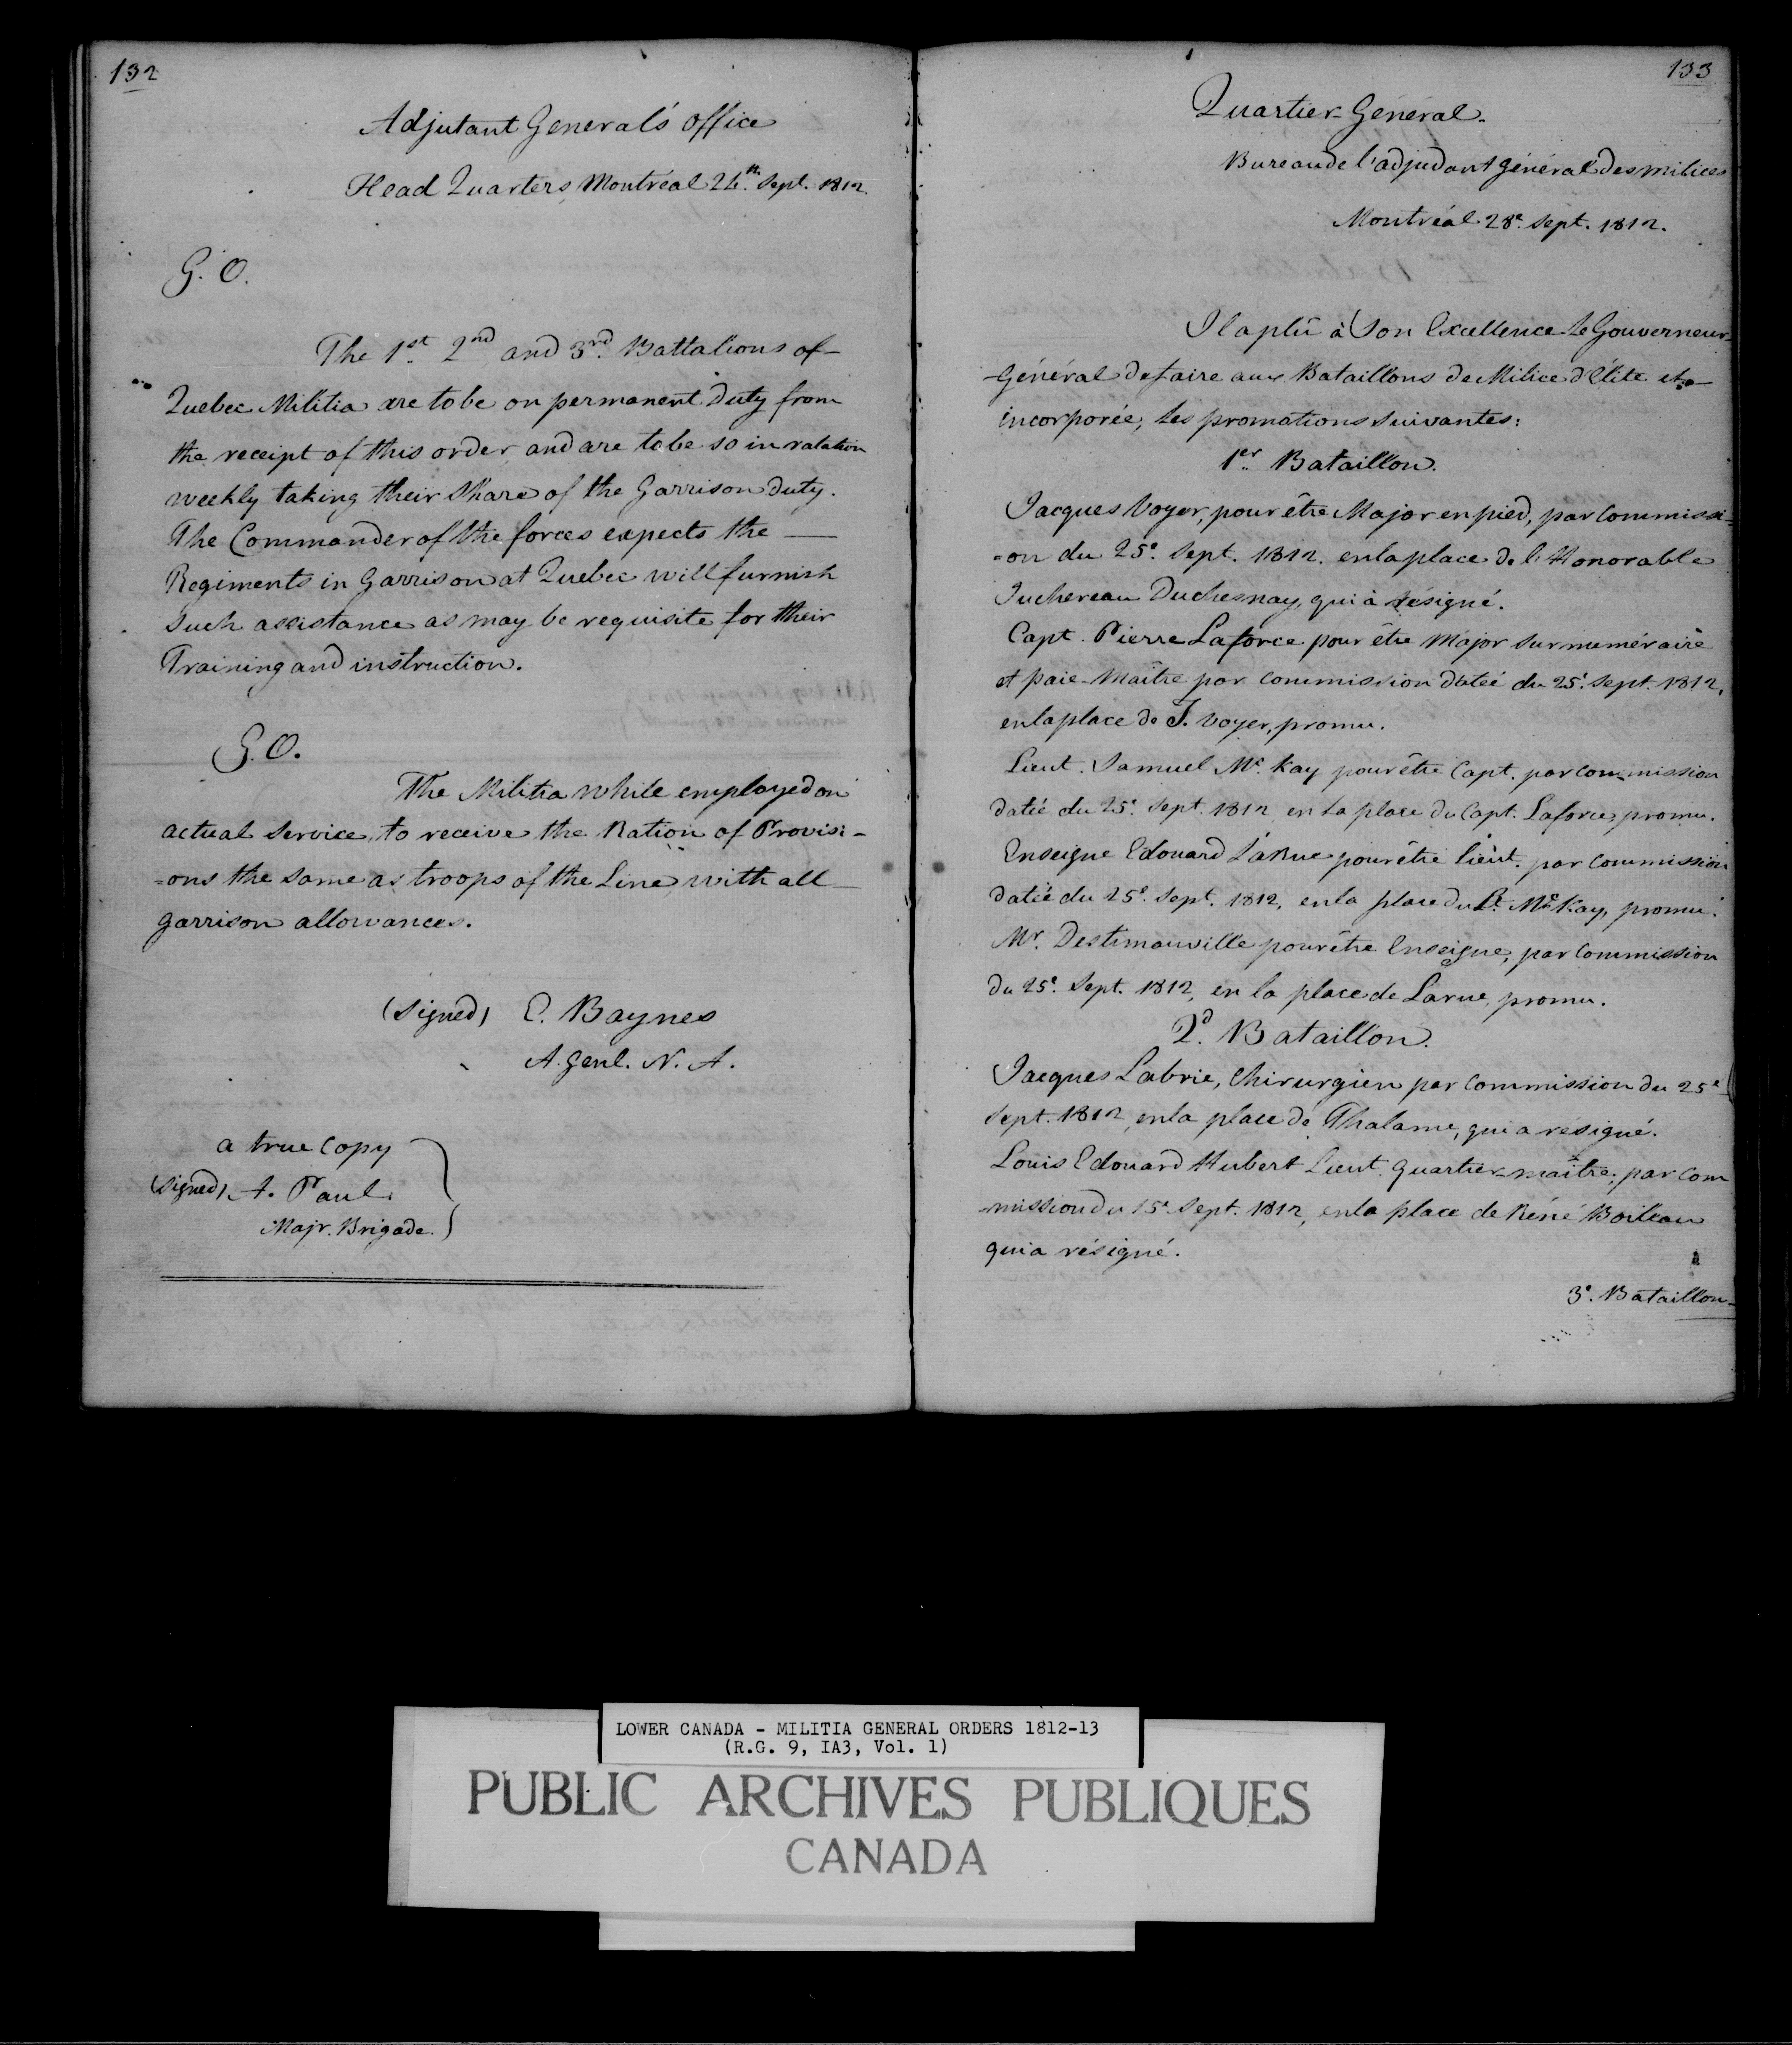 132
Adjutant General's Office
Head Quarters, Montréal 24.th Sept. 1812
G. O.
The 1.st 2nd and 3rd. Battalions of
Quebec Militia are to be on permanent Duty from
the receipt of this order, and are to be so in ratation
weekly taking their Share of the Garrison duty.
The Commander of the forces expects the —
Regiments in Garrison at Quebec will furnish
such assistance as may be requisite for their
Training and instruction.
G. O.
The Militia while employed on
actual Service, to receive the Ration of Provisi-
=ons the same as troops of the Line, with all —
garrison allowances.
(Signed) E. Baynes
A. Genl. N. A.
a true Copy
(Signed) A. Paul
Majr. Brigade.
133
Quartier-Général.
Bureau de l'adjudant général des milices
Montréal 28e. Sept. 1812.
Il a plû à Son Excellence le Gouverneur-
-Général de faire aux Bataillons de Milice d'Elite et —
incorporée, les promations suivantes:
1er. Bataillon.
Jacques Voyer, pour être Major en pied, par Commissi-
=on du 25e. Sept. 1812. en la place de l'Honorable
Juchereau Duchesnay, qui à résigné.
Capt. Pierre Laforce pour être Major surnuméraire
et paie-Maître par Commission datée du 25e. Sept. 1812,
en la place de J. Voyer, promu.
Lieut. Samuel Mc. Kay pour être Capt. par Commission
datée du 25e. Sept. 1812 en la place du Capt. Laforce, promu.
Enseigne Edouard LaRue pour être lieut. par Commission
datée du 25e. Sept. 1812, en la place du Lt. McKay, promu.
Mr. Destimauville pour être Enseigne, par Commission
du 25e. Sept. 1812, en la place de Larue, promu.
2d. Bataillon.
Jacques Labrie, Chirurgien par Commission du 25e
Sept. 1812, en la place de Thalame, qui a résigné.
Louis Edouard Hubert Lieut. Quartier-maître, par Com
-mission du 15e. Sept. 1812, en la place de Réné Boileau
qui a résigné.
3e. Bataillon-
LOWER CANADA - MILITIA GENERAL ORDERS 1812-13
(R.G. 9, IA3, Vol. 1)
PUBLIC ARCHIVES PUBLIQUES
CANADA